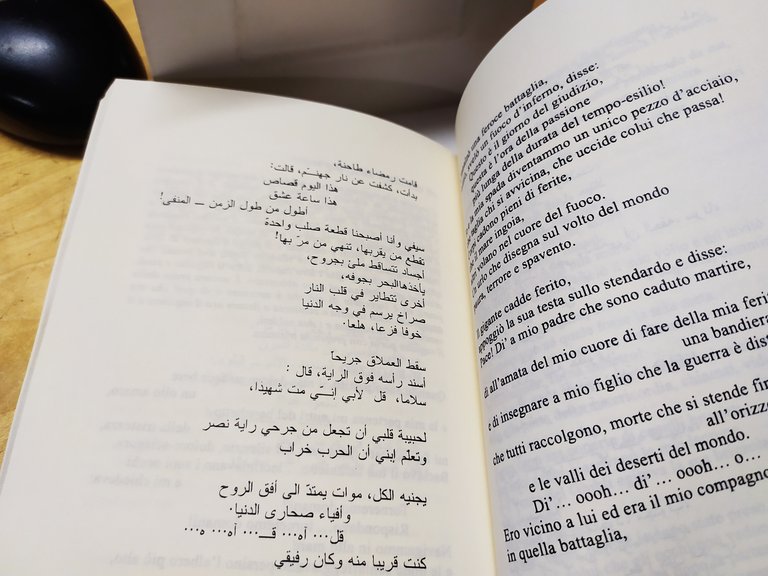 قامت رمضاء طاحنة،
بدأت، كشفت عن نار جهنّم، قالت:
هذا اليوم قصاص
هذا ساعة عشق
أطول من طول الزمن ــ المنفى!
سيفي وأنا أصبحنا قطعة صلب واحدة
تقطع من يقربها، تنهي من مرّ بها!
أجساد تتساقط ملئ بجروح،
يأخذها البحر بجوفه،
أخرى تتطاير في قلب النار
صراخ يرسم في وجه الدنيا
خوفا فزعا، هلعا.
سقط العملاق جريحاً
أسند رأسه فوق الراية، قال :
سلاما، قل لأبي إنّي مت شهيدا،
لحبيبة قلبي أن تجعل من جرحي راية نصر
وتعلم إبني أن الحرب خراب
يجنيه الكل، موات يمتدّ الى أفق الروح
وأفياء صحارى الدنيا.
قل... آه... قــ... آه... ه...
كنت قريبا منه وكان رفيقي
una feroce battaglia,
un fuoco d'inferno, disse:
Questo è il giorno del giudizio,
questa è l'ora della passione
più lunga della durata del tempo-esilio!
la mia spada diventammo un unico pezzo d'acciaio,
taglia chi si avvicina, che uccide colui che passa!
cadono pieni di ferite,
il mare ingoia,
volano nel cuore del fuoco.
urlo che disegna sul volto del mondo
terrore e spavento.
gigante cadde ferito,
appoggiò la sua testa sullo stendardo e disse:
Pace! Di' a mio padre che sono caduto martire,
di all'amata del mio cuore di fare della mia
una bandiera
e di insegnare a mio figlio che la guerra è
che tutti raccolgono, morte che si stende
e le valli dei deserti del mondo.
Di' … oooh… di' … oooh… o…
Ero vicino a lui ed era il mio
in quella battaglia,